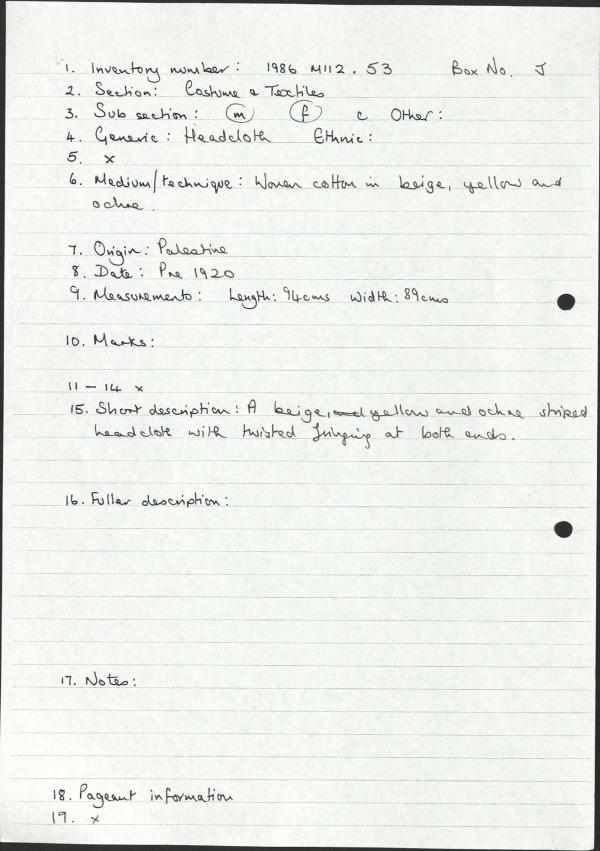 1. Inventory number: 1986 M112.53 Box No. J
2. Section: Costume & Textiles
3. Sub section: m f c Other:
4. Generic: Headcloth Ethnic:
5. x
6. Medium/technique: Woven cotton in beige, yellow and
ochre.
7. Origin: Palestine
8. Date: Pre 1920
9. Measurements: Length: 94cms Width: 89cms
10. Marks:
11 – 14 x
15. Short description: A beige, and yellow and ochre striped
headcloth with twisted fringing at both ends.
16. Fuller description:
17. Notes:
18. Pageant information
19. x